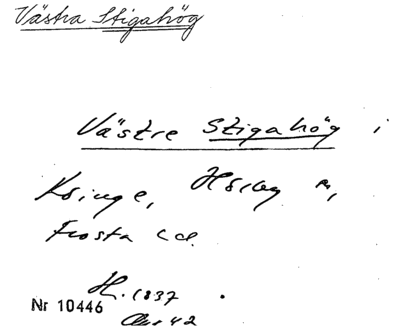 Västra Stigahög
Västre Stigahög i
Kringe, Hörby s,
Frosta hd.
H. 1837
Nr 10446
Akr 42